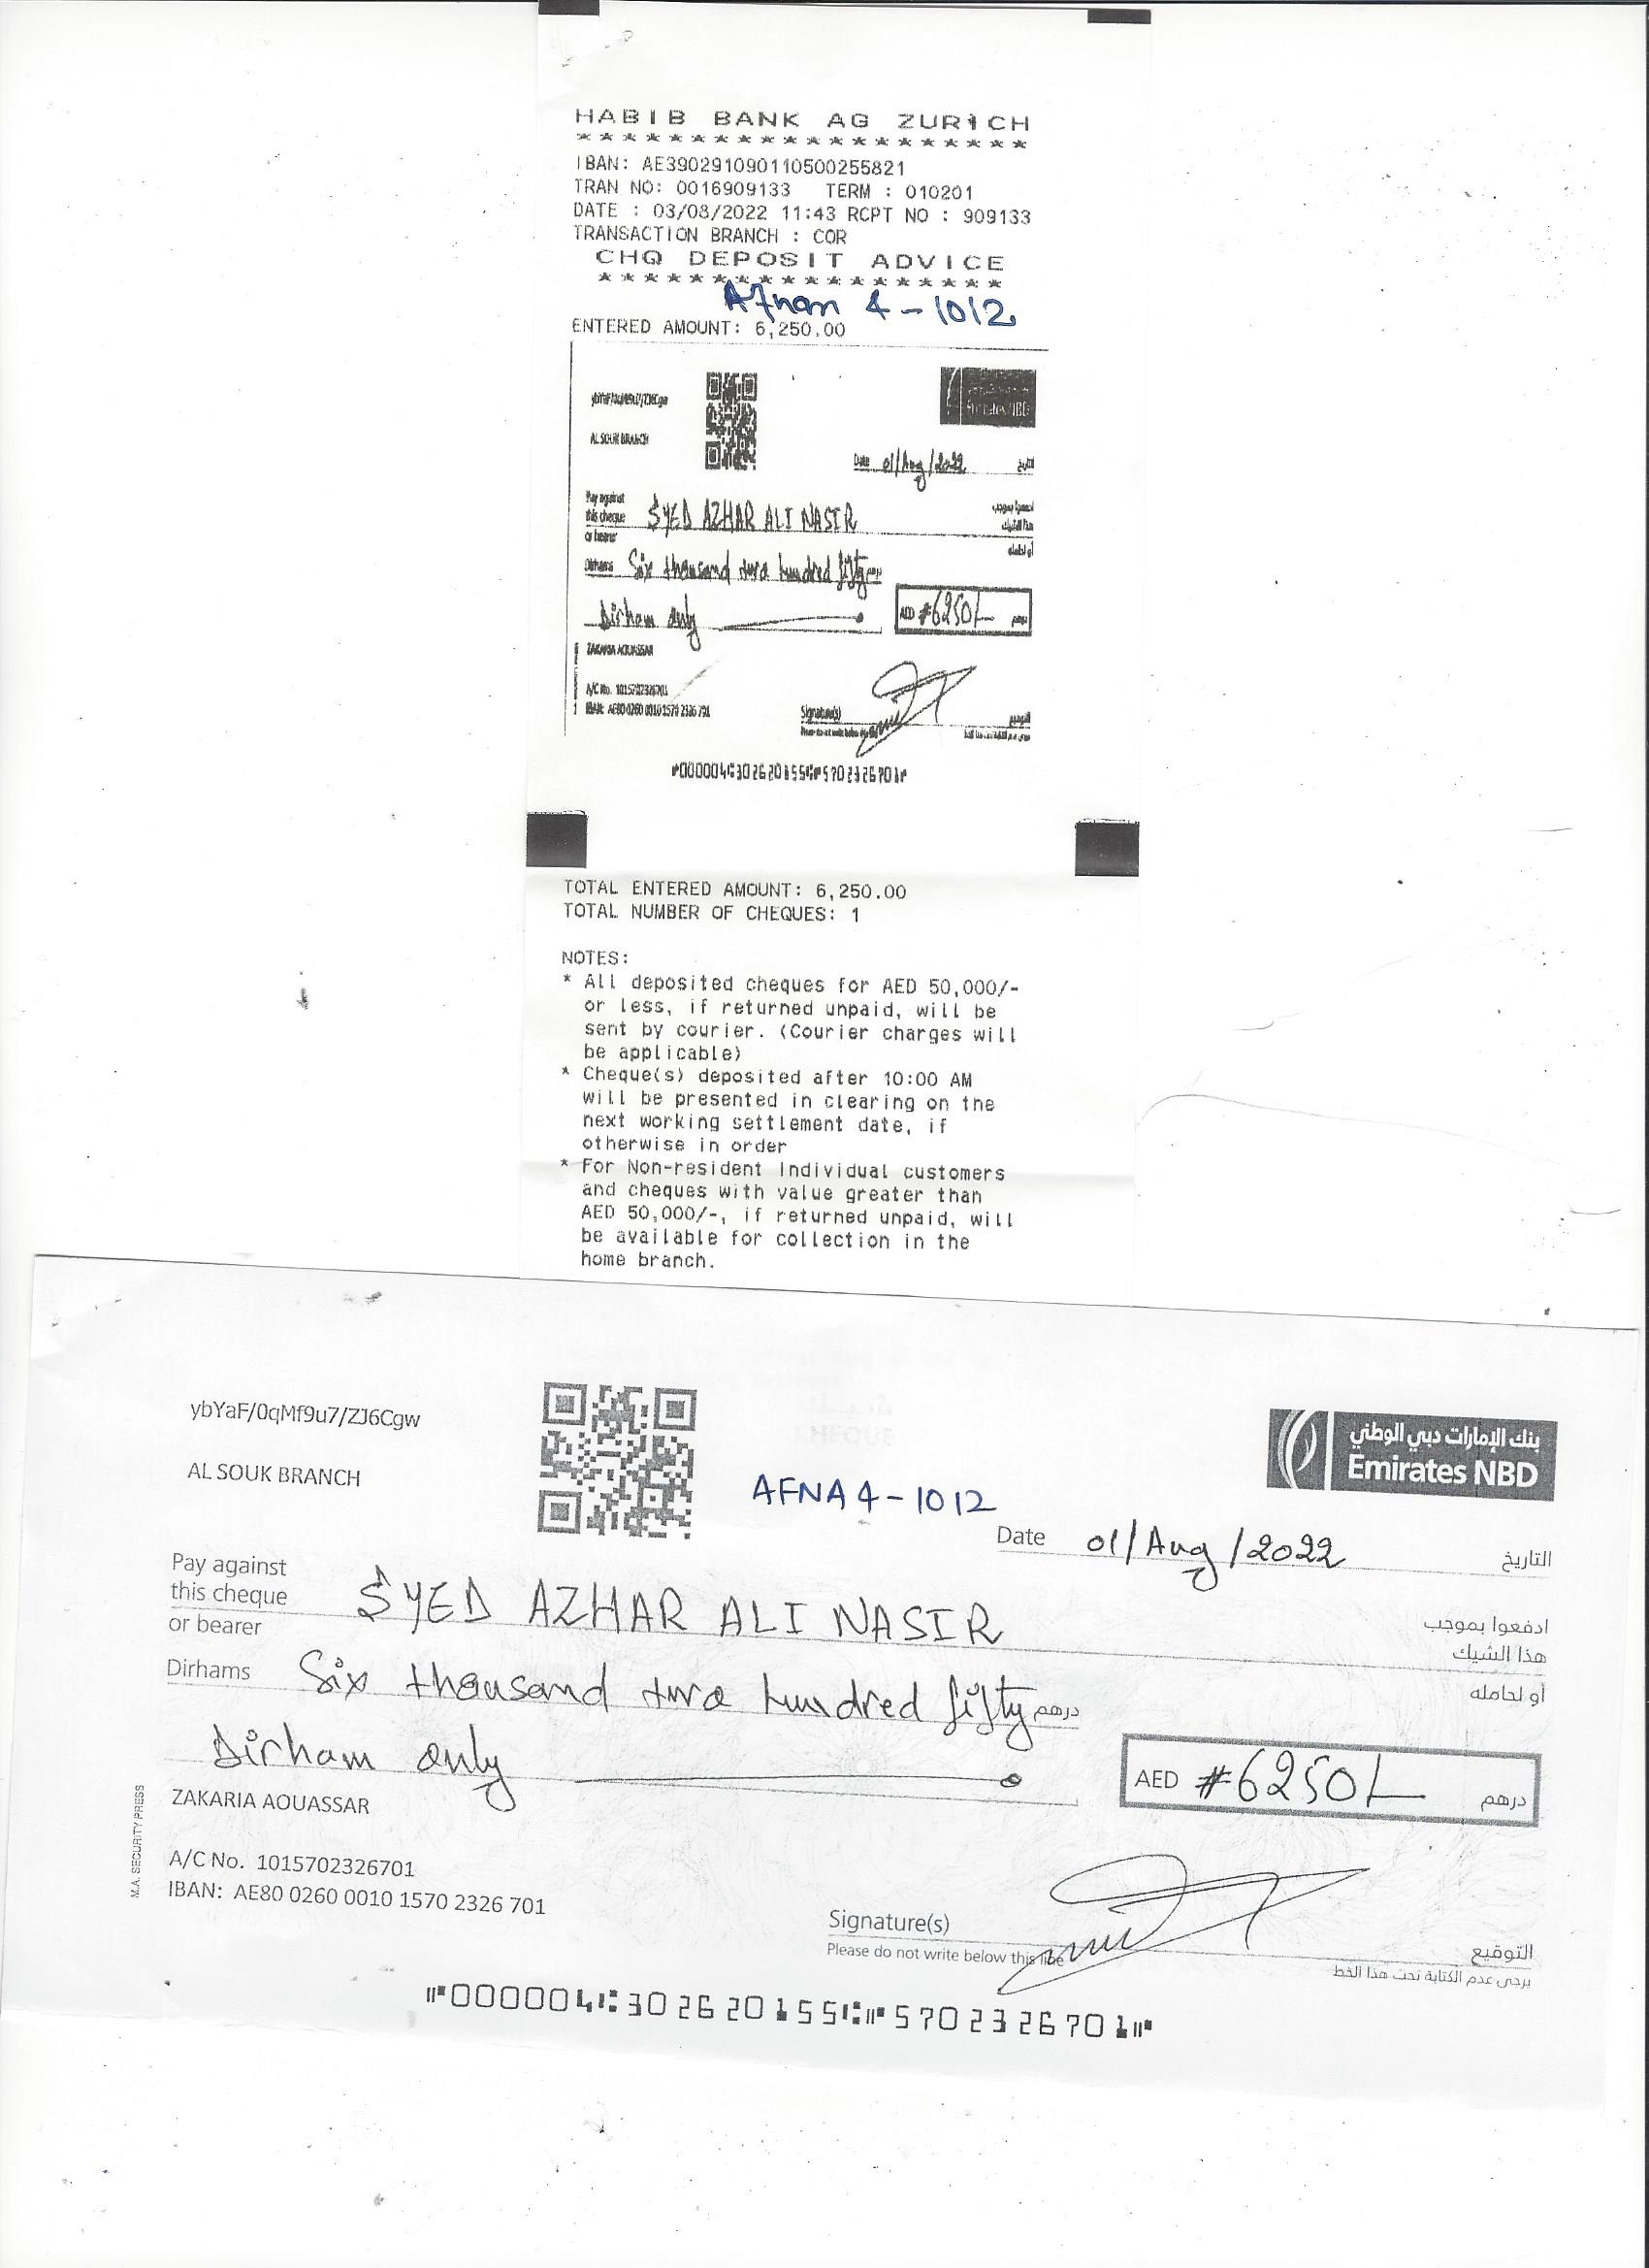 HABIB BANK AG ZURICH
********************
IBAN: AE390291090110500255821
TRAN NO: 0016909133 TERM : 010201
DATE : 03/08/2022 11:43 RCPT NO : 909133
TRANSACTION BRANCH : COR
CHQ DEPOSIT ADVICE
******************
Afnan 4-1012
ENTERED AMOUNT: 6,250.00
AL SOUK BRANCH
Emirates NBD
Date 01/Aug/2022 التاريخ
Pay against
this cheque SYED AZHAR ALI NASIR ادفعوا بموجب
هذا الشيك
or bearer أو لحامله
Dirhams Six thousand two hundred fifty درهم
Dirham only AED #6250/- درهم
ZAKARIA AOUASSAR
A/C No. 1015702326701
IBAN: AE80 0260 0010 1570 2326 701
Signature(s) التوقيع
Please do not write below this line يرجى عدم الكتابة تحت هذا الخط
⑈000004⑆302620155⑆⑈5702326701⑈
TOTAL ENTERED AMOUNT: 6,250.00
TOTAL NUMBER OF CHEQUES: 1
NOTES:
* All deposited cheques for AED 50,000/-
or less, if returned unpaid, will be
sent by courier. (Courier charges will
be applicable)
* Cheque(s) deposited after 10:00 AM
will be presented in clearing on the
next working settlement date, if
otherwise in order
* For Non-resident Individual customers
and cheques with value greater than
AED 50,000/-, if returned unpaid, will
be available for collection in the
home branch.
ybYaF/0qMf9u7/ZJ6Cgw
بنك الإمارات دبي الوطني
Emirates NBD
AL SOUK BRANCH
AFNA4-1012
Date 01/Aug/2022 التاريخ
Pay against
this cheque SYED AZHAR ALI NASIR ادفعوا بموجب
هذا الشيك
or bearer أو لحامله
Dirhams Six thousand two hundred fifty درهم
Dirham only AED #6250/- درهم
M.A. SECURITY PRESS
ZAKARIA AOUASSAR
A/C No. 1015702326701
IBAN: AE80 0260 0010 1570 2326 701
Signature(s) التوقيع
Please do not write below this line يرجى عدم الكتابة تحت هذا الخط
⑈000004⑆302620155⑆⑈5702326701⑈